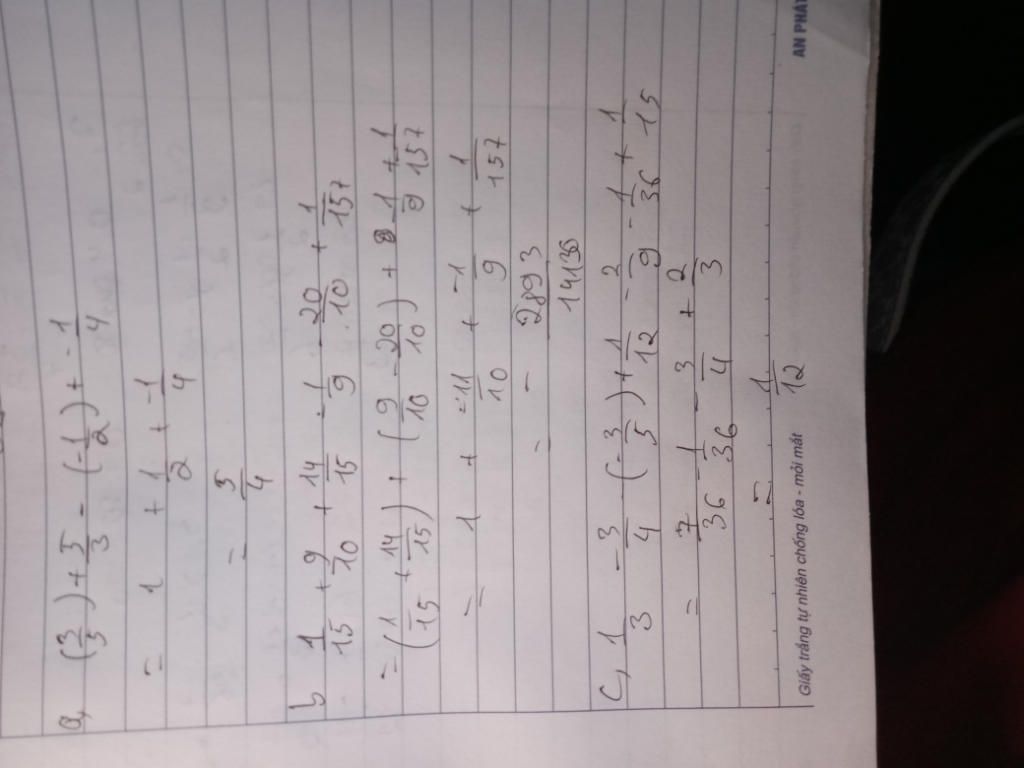 a, (3/5) + 5/3 - (-1/2) + -1/4
= 1 + 1/2 + -1/4
= 5/4
b 1/15 + 9/10 + 14/15 - 1/9 - 20/10 + 1/157
= (1/15 + 14/15) + (9/10 - 20/10) + 1/9 + 1/157
= 1 + -11/10 + -1/9 + 1/157
= - 2893/14135
c, 1/3 - 3/4 - (-3/5) + 1/12 - 2/9 - 1/36 + 1/15
= 7/36 - 1/36 - 3/4 + 2/3
= 1/12
Giấy trắng tự nhiên chống lóa - mỏi mắt
AN PHÁT